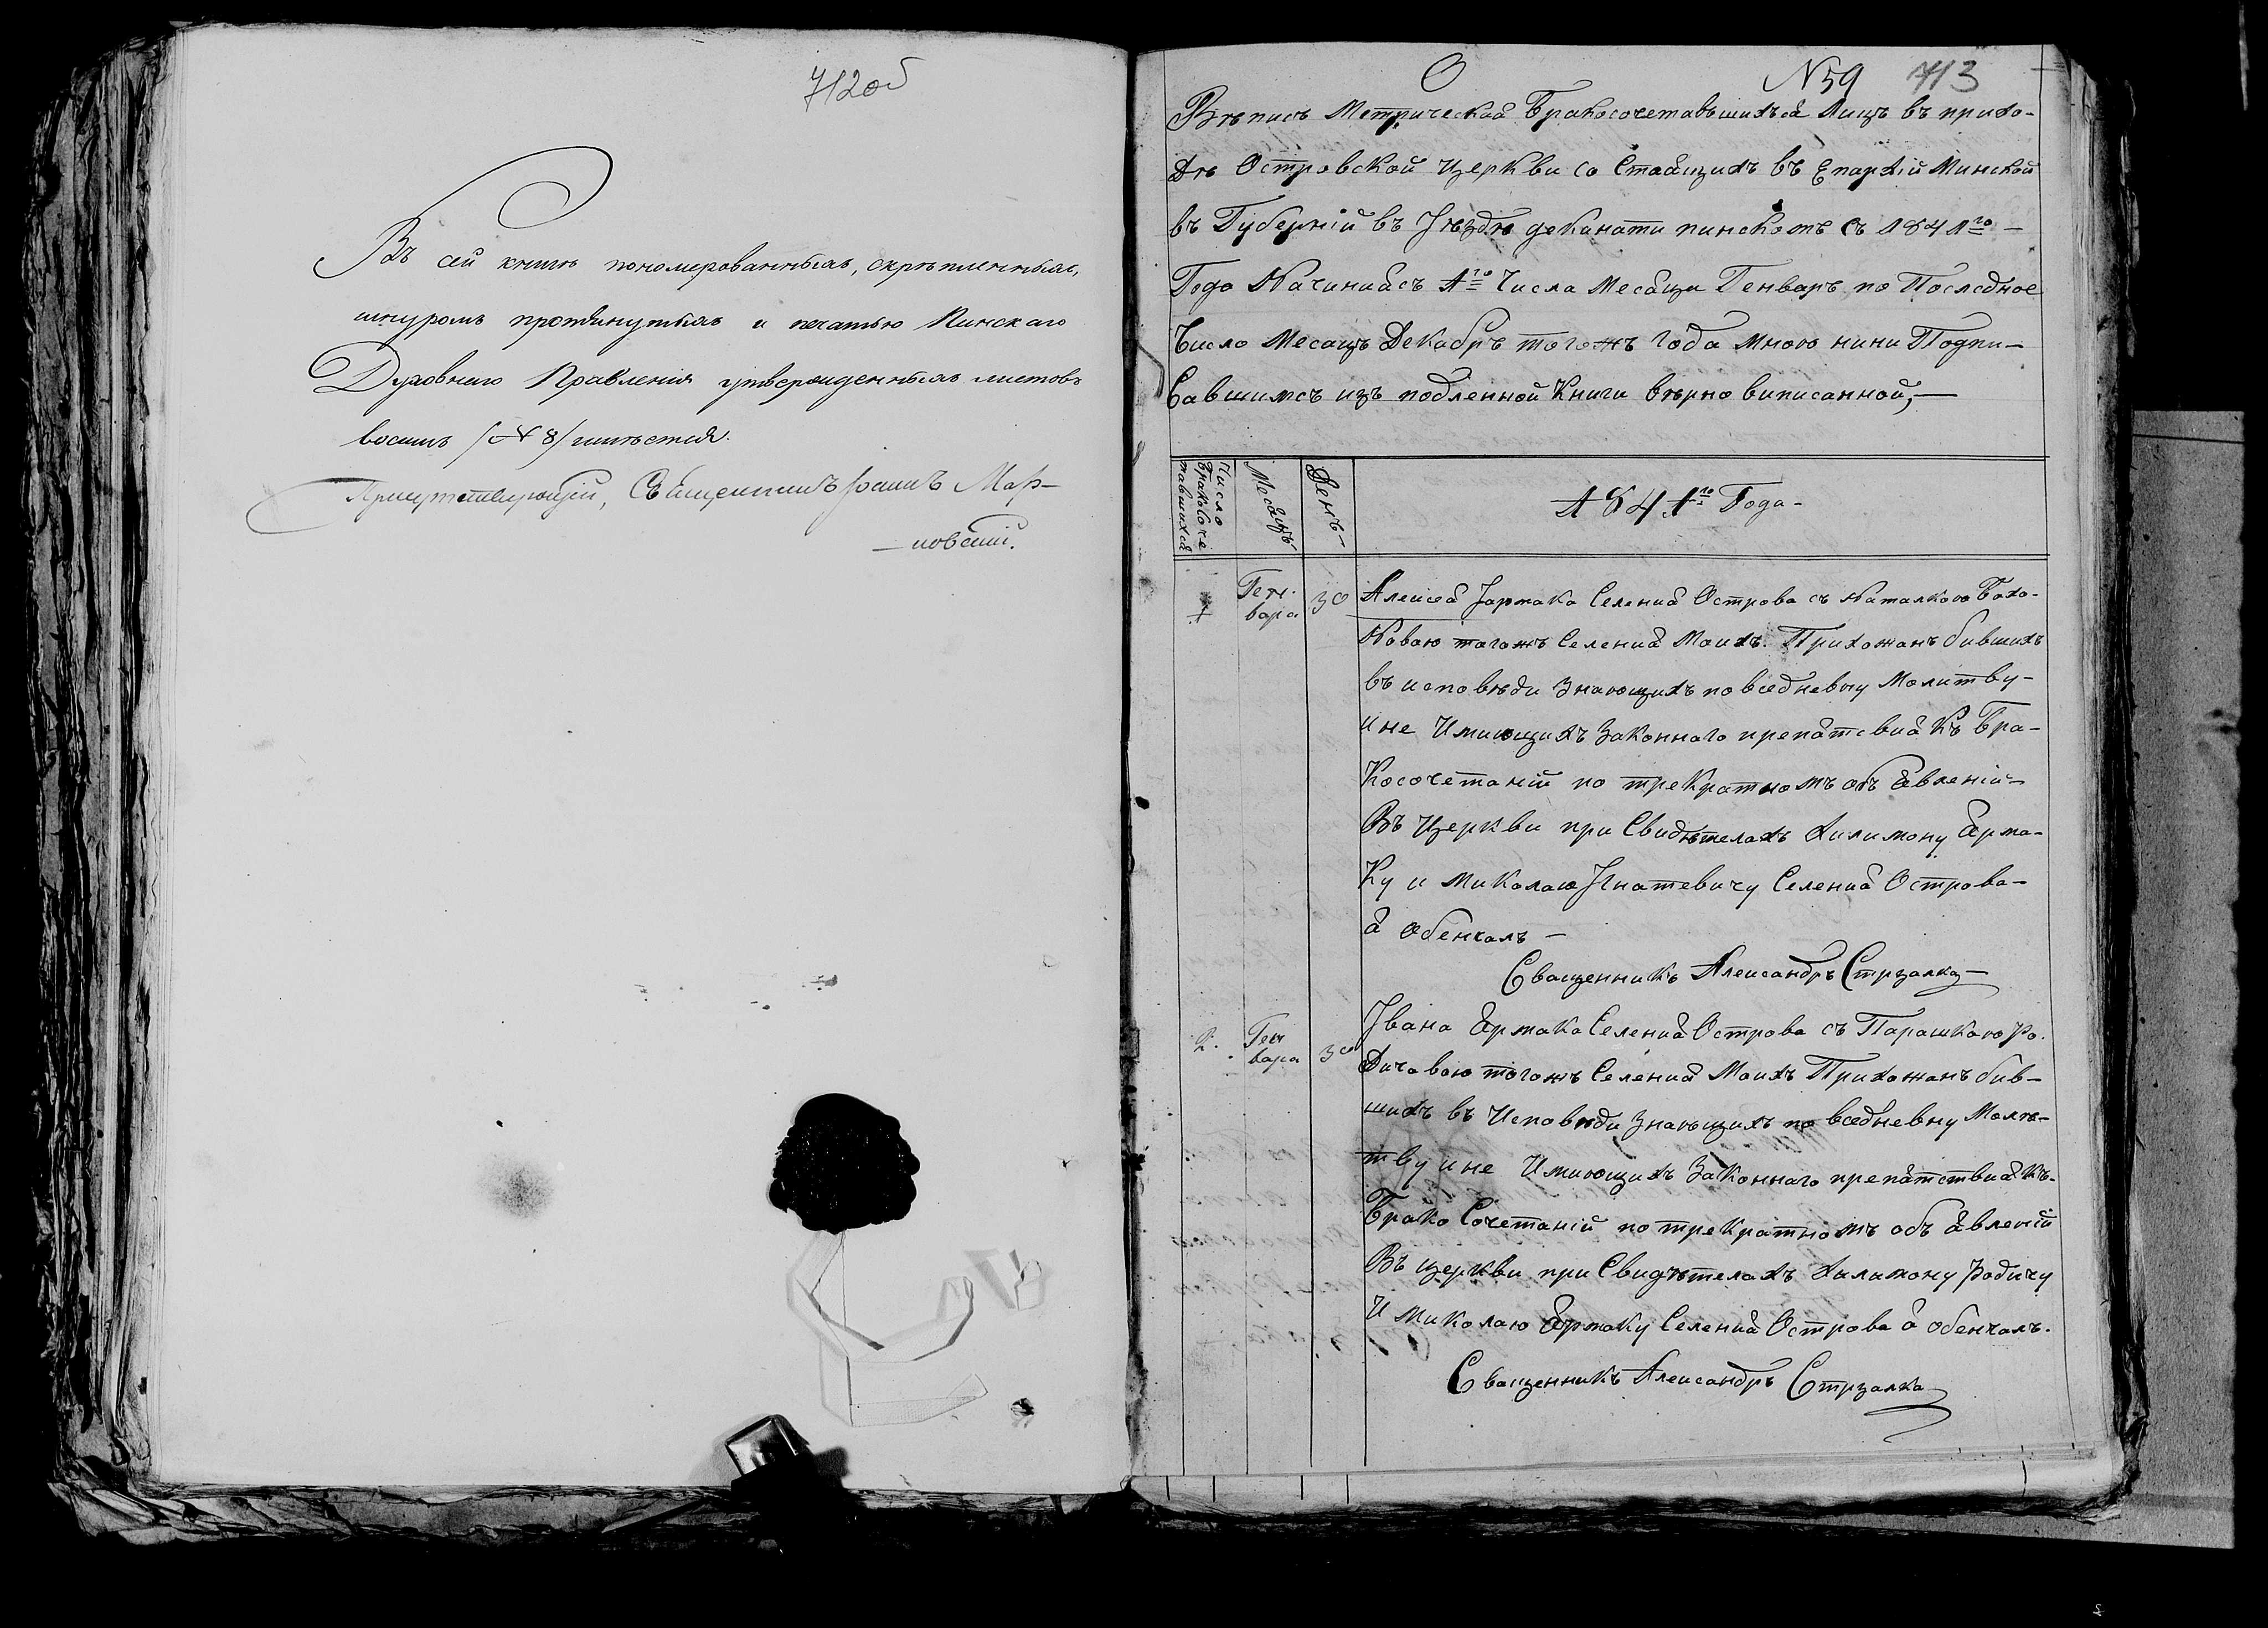 712об
Въ сей книгѣ пономерованныхъ, скрѣпленныхъ,
шнуромъ протянутыхъ и печатью Пинскаго
Духовнаго Правленія утвержденныхъ листовъ
восемь /№ 8/ имѣется.
Присутствующій, Священникъ Іоаннъ Мар-
новскій.
N 59 713
Впѣпись Метрическая Бракосочетавшихся Лицъ въ прихо-
дѣ Островской Церкви со Стаящихъ въ Епархіи Минской
въ Губерніи въ Уѣздѣ деканати пинскомъ съ 1841го –
Года Начинаясъ 1го Числа Месяца Генваръ по Последное
Число Месацъ Декабръ тогожъ года мною нини Подпи-
савшимсъ изъ подленной Книги вѣрно виписанной,—
Число Бракосоче тавшихся
Месацъ
Денъ–
1841го Года-
1 Ген- 30 Алексея Јармака Селения Острова съ Наталкою Бахо-
вара
новаю тагожъ Селения Моихъ Прихожанъ бившихъ
въ исповѣди знающихъ повседневну Молитву-
и не Имиющихъ Законнаго препятсвия Къ Бра-
Косочетаній по трекратномъ объ явленій-
Въ Церкви при Свидѣтелахъ Хилимону Ярма-
Ку и Миколаю Игнатевичу Селения Острова-
я обенчалъ –
Сващенникъ Александръ Стрзалка
2. Ген 30 Јвана Ярмака Селения Острова съ Парашкою Ро-
вара
дичовою тогожъ Селения Моихъ Прихожанъ бив-
шихъ въ Исповѣди Знающихъ повседневну Моле-
тву и не Имиющихъ Законнаго препятствия Къ-
Брако Сочетаній по трекратномъ объ явленій
Въ церкви при Свидѣтелахъ Халимону Родичу
И Миколаю Ярмаку Селения Острова я обенчалъ.
Сващенникъ Александръ Стрзалка